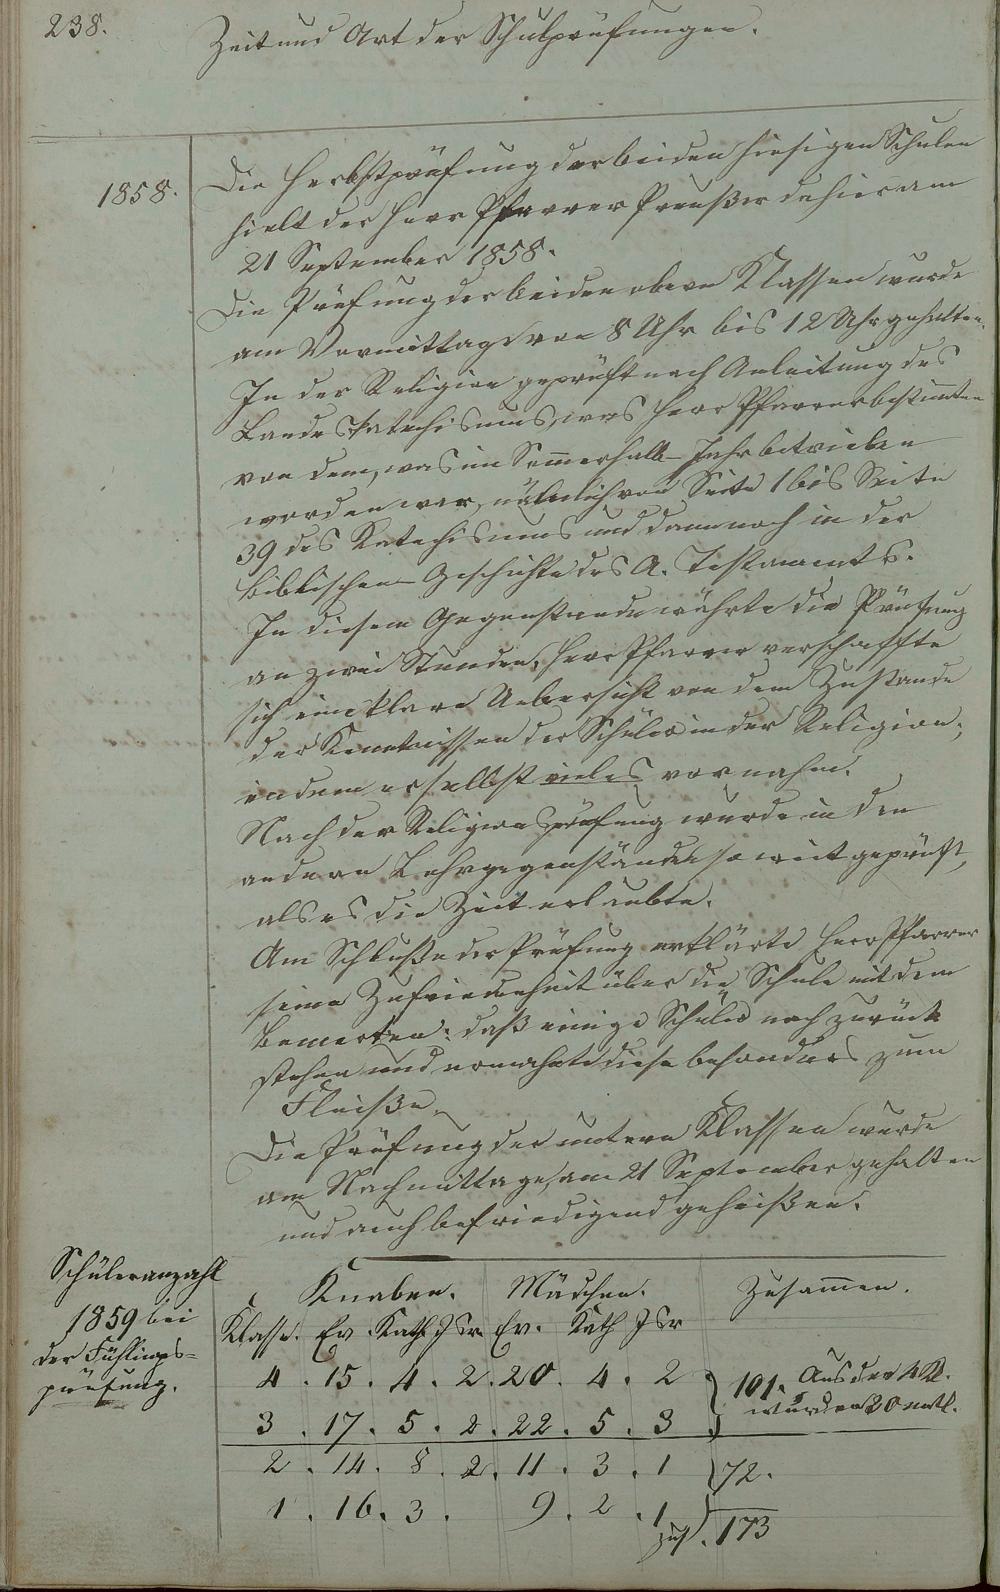 238.
Zeit und Art der Schulprüfungen.
1858.
Die Herbstprüfung der beiden hiesigen Schulen
hielt der Herr Pfarrer Preußer dahier am
21 September 1858.
Die Prüfung der beiden obern Klassen wurde
am Vormittage von 8 Uhr bis 12 Uhr gehalten.
In der Religion geprüft nach Anleitung des
Landeskatechismus, was Herr Pfarrer bestimmten
von dem, was im Sommerhalb-Jahr betrieben
worden war, nämlich von Seite 1 bis Seite
39 des Katechismus und dann noch in der
biblischen Geschichte des A. Testaments.
In diesem Gegenstande währte die Prüfung
an zwei Stunden. Herr Pfarrer verschaffte
sich eine klare Uebersicht von dem Zustande
der Kenntnissen der Schüler in der Religion,
indem er selbst vieles vornahm.
Nach der Religionsprüfung wurde in den
andern Lehrgegenständen so weit geprüft,
als es die Zeit erlaubte.
Am Schluße der Prüfung erklärte Herr Pfarrer
seine Zufriedenheit über die Schule mit dem
Bemerken: daß einige Schüler noch zurück
stehen und ermahnte diese besonders zum
Fleiße.
Die Prüfung der untern Klassen wurde
am Nachmittage, am 21 September gehalten
und auch befriedigend geheißen.
Schüleranzahl
1859 bei
der Fühlings=
prüfung.
Knaben. Mädchen. Zusamen.
Klasse. Ev. Kath. Isr. Ev. Kath Isr
4 . 15 . 4 . 2 . 20 . 4 . 2 } 101. Aus der 4 Kl.
3 . 17 . 5 . 2 . 22 . 5 . 3 wurden 20 entl.
2 . 14 . 8 . 2 . 11 . 3 . 1 } 72.
1 . 16 . 3 . 9 . 2 . 1
zus. 173